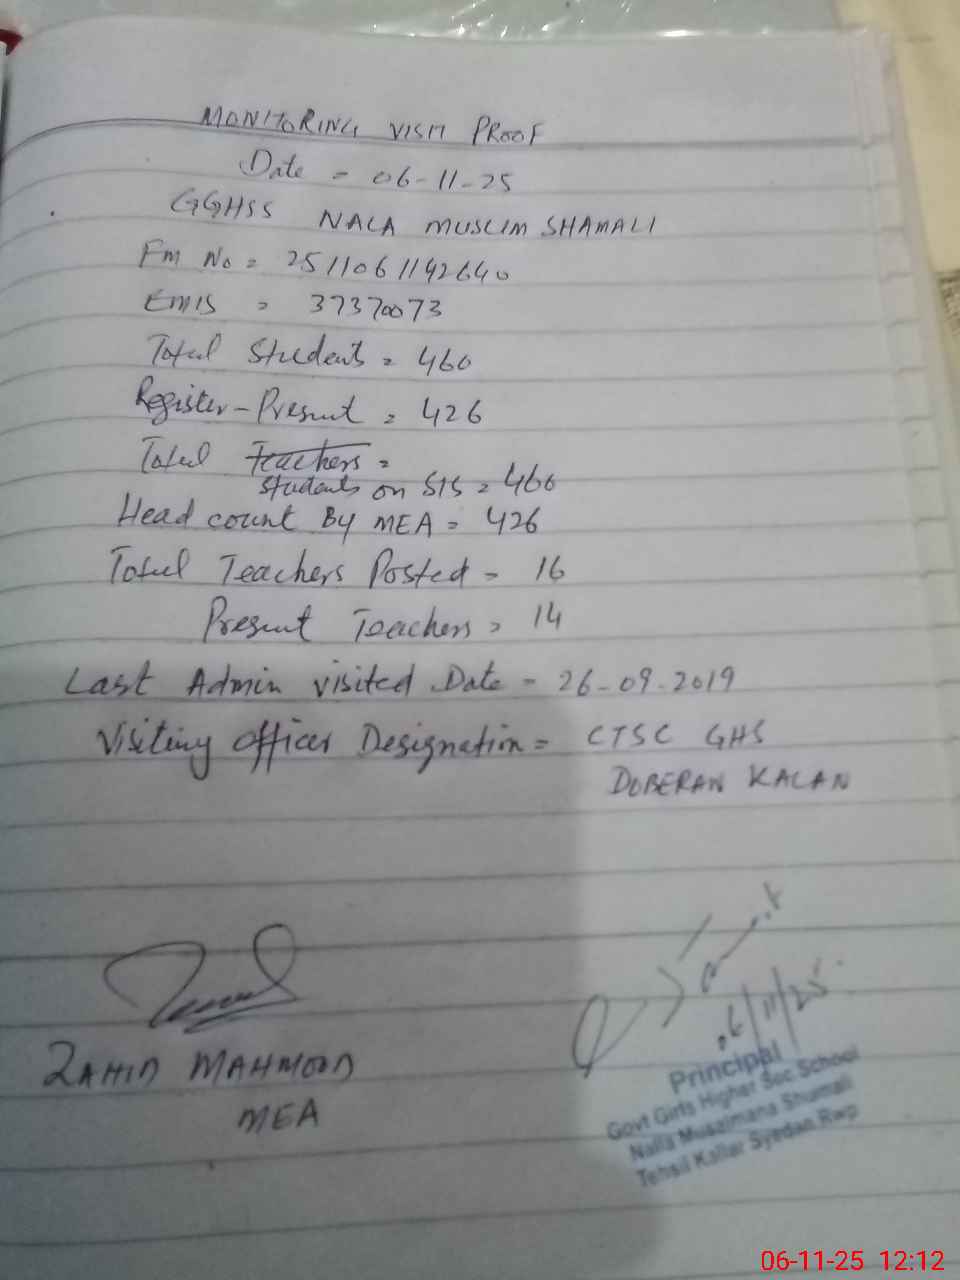 MONITORING VISIT PROOF
Date = 06-11-25
GGHSS NALA MUSLIM SHAMALI
Fm No = 2511061142640
EMIS = 37370073
Total Student = 460
Register-Present = 426
Total Teachers =
students on SIS = 460
Head count By MEA = 426
Total Teachers Posted = 16
Present Teachers = 14
Last Admin visited Date = 26-09-2019
Visiting officer Designation = CTSC GHS
DOBERAN KALAN
06/11/25
ZAHID MAHMOOD
MEA
Principal
Govt Girls Higher Sec School
Nalla Musalmana Shumali
Tehsil Kallar Syedan Rwp
06-11-25 12:12